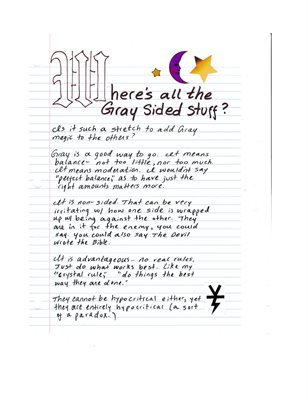 Where's all the
Gray Sided Stuff?
Is it such a stretch to add Gray
magic to the others?
Gray is a good way to go. It means
balance - not too little, nor too much.
It means moderation. I wouldn't say
"perfect balance," as to have just the
right amounts matters more.
It is non-sided. That can be very
irritating w/ how one side is wrapped
up w/ being against the other. They
are in it for the enemy, you could
say. You could also say The Devil
wrote the Bible.
It is advantageous - no real rules.
Just do what works best. Like my
"crystal rule," "do things the best
way they are done."
They cannot be hypocritical either, yet
they are entirely hypocritical (a sort
of a paradox.)